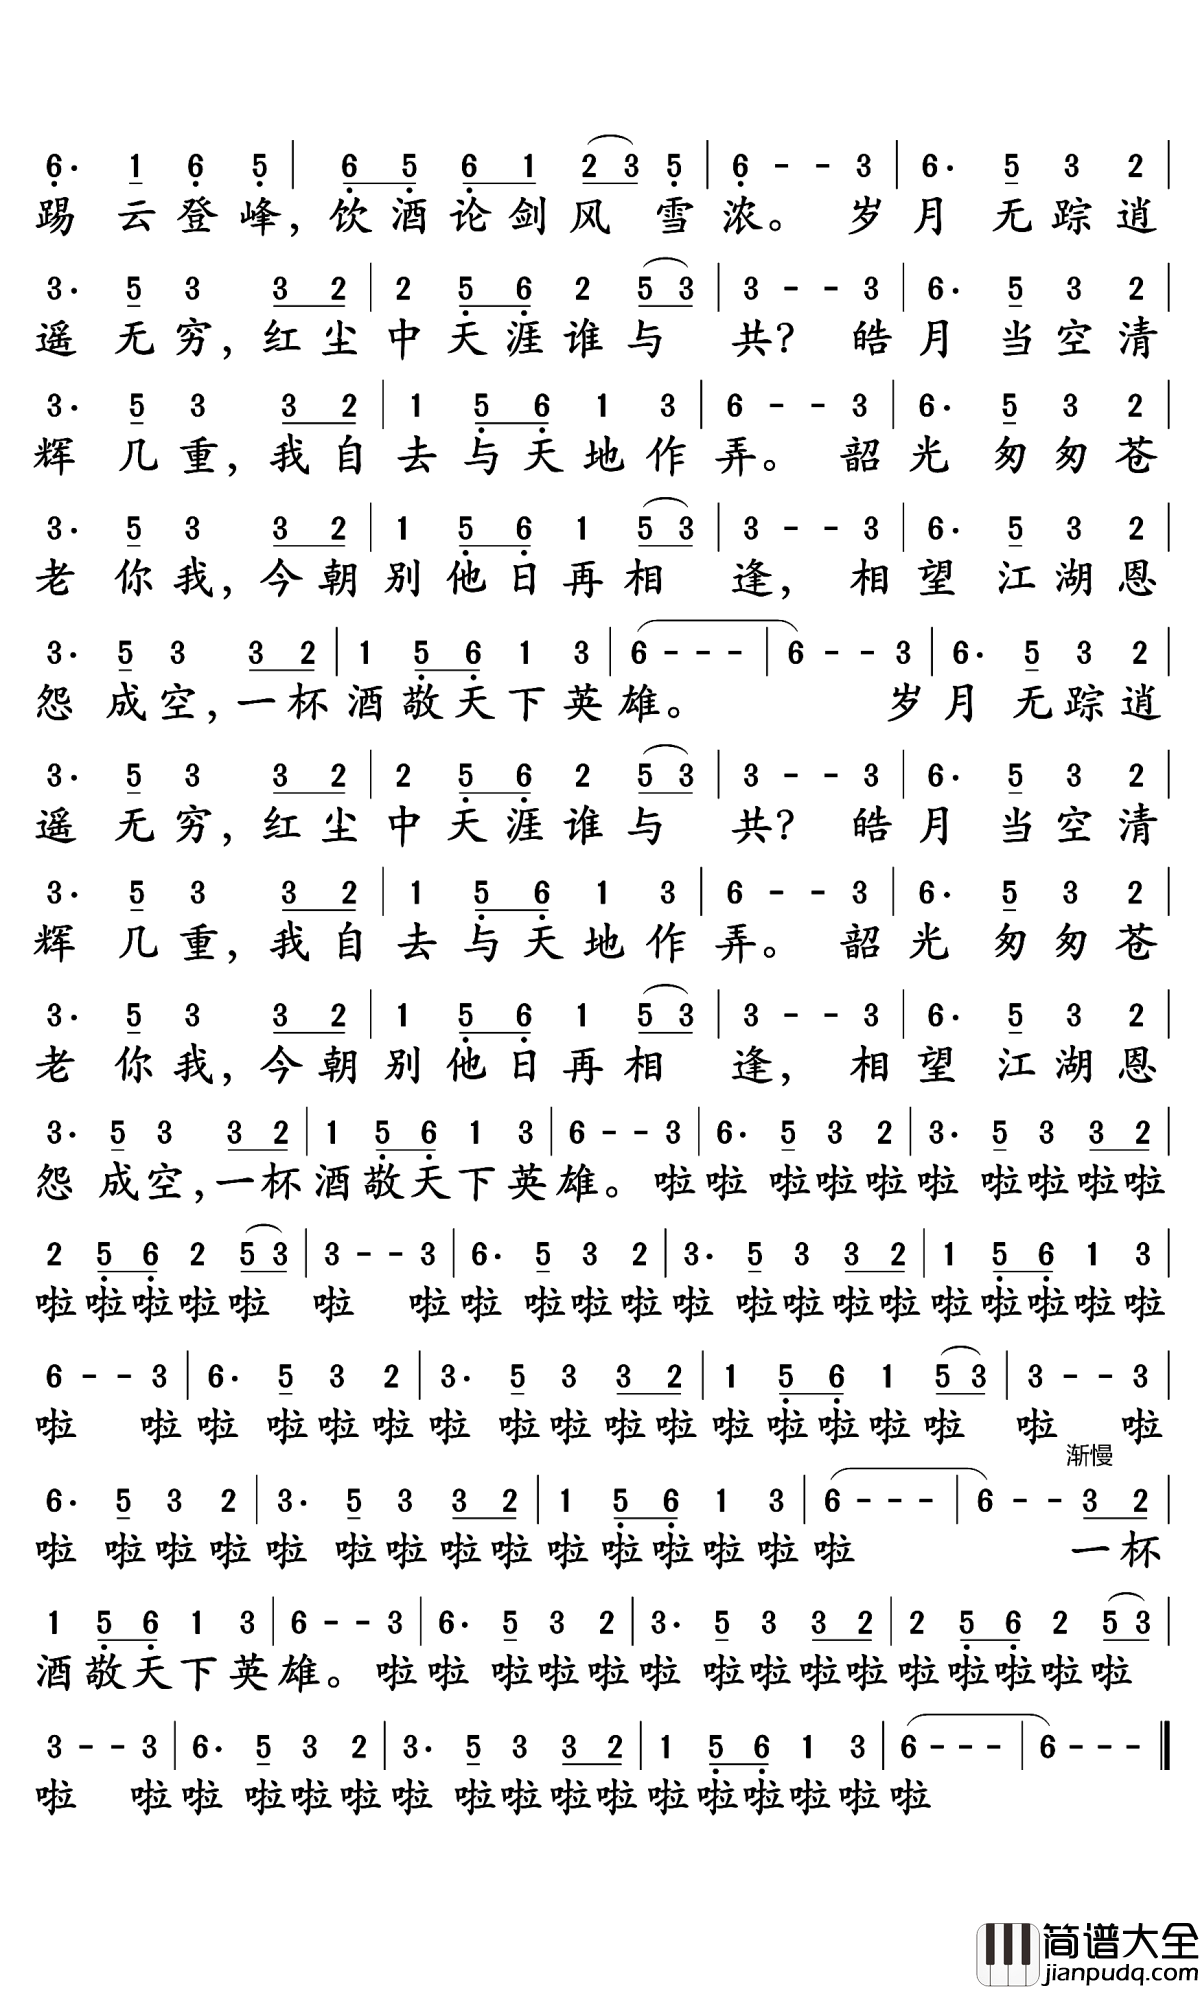 6. 1 6 5 | 6 5 6 1 2 3 5 | 6 - - 3 | 6. 5 3 2 |
踢云登峰，饮酒论剑风雪浓。岁月无踪逍
3. 5 3 3 2 | 2 5 6 2 5 3 | 3 - - 3 | 6. 5 3 2 |
遥无穷，红尘中天涯谁与共？皓月当空清
3. 5 3 3 2 | 1 5 6 1 3 | 6 - - 3 | 6. 5 3 2 |
辉几重，我自去与天地作弄。韶光匆匆苍
3. 5 3 3 2 | 1 5 6 1 5 3 | 3 - - 3 | 6. 5 3 2 |
老你我，今朝别他日再相逢，相望江湖恩
3. 5 3 3 2 | 1 5 6 1 3 | 6 - - - | 6 - - 3 | 6. 5 3 2 |
怨成空，一杯酒敬天下英雄。岁月无踪逍
3. 5 3 3 2 | 2 5 6 2 5 3 | 3 - - 3 | 6. 5 3 2 |
遥无穷，红尘中天涯谁与共？皓月当空清
3. 5 3 3 2 | 1 5 6 1 3 | 6 - - 3 | 6. 5 3 2 |
辉几重，我自去与天地作弄。韶光匆匆苍
3. 5 3 3 2 | 1 5 6 1 5 3 | 3 - - 3 | 6. 5 3 2 |
老你我，今朝别他日再相逢，相望江湖恩
3. 5 3 3 2 | 1 5 6 1 3 | 6 - - 3 | 6. 5 3 2 | 3. 5 3 3 2 |
怨成空，一杯酒敬天下英雄。啦啦啦啦啦啦啦啦啦啦
2 5 6 2 5 3 | 3 - - 3 | 6. 5 3 2 | 3. 5 3 3 2 | 1 5 6 1 3 |
啦啦啦啦啦 啦 啦啦 啦啦啦啦 啦啦啦啦啦啦啦啦啦
6 - - 3 | 6. 5 3 2 | 3. 5 3 3 2 | 1 5 6 1 5 3 | 3 - - 3 |
啦 啦啦 啦啦啦啦 啦啦啦啦啦啦啦啦啦 啦 啦
渐慢
6. 5 3 2 | 3. 5 3 3 2 | 1 5 6 1 3 | 6 - - - | 6 - - 3 2 |
啦 啦啦啦啦 啦啦啦啦啦啦啦啦啦啦 一杯
1 5 6 1 3 | 6 - - 3 | 6. 5 3 2 | 3. 5 3 3 2 | 2 5 6 2 5 3 |
酒敬天下英雄。啦啦 啦啦啦啦 啦啦啦啦啦啦啦啦啦
3 - - 3 | 6. 5 3 2 | 3. 5 3 3 2 | 1 5 6 1 3 | 6 - - - | 6 - - - ‖
啦 啦啦 啦啦啦啦 啦啦啦啦啦啦啦啦啦啦
简谱大全
jianpudq.com